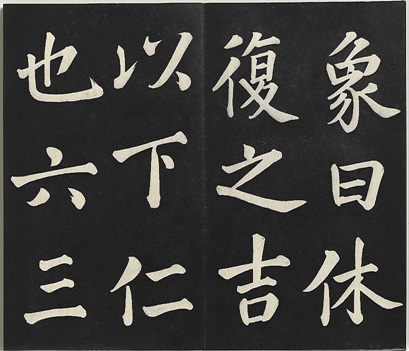 象曰休
復之吉
以下仁
也六三